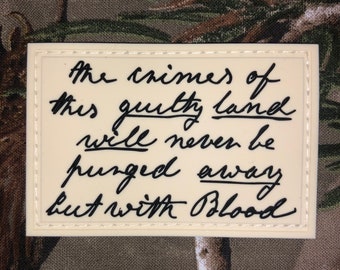 the crimes of
this guilty land
will never be
purged away
but with Blood